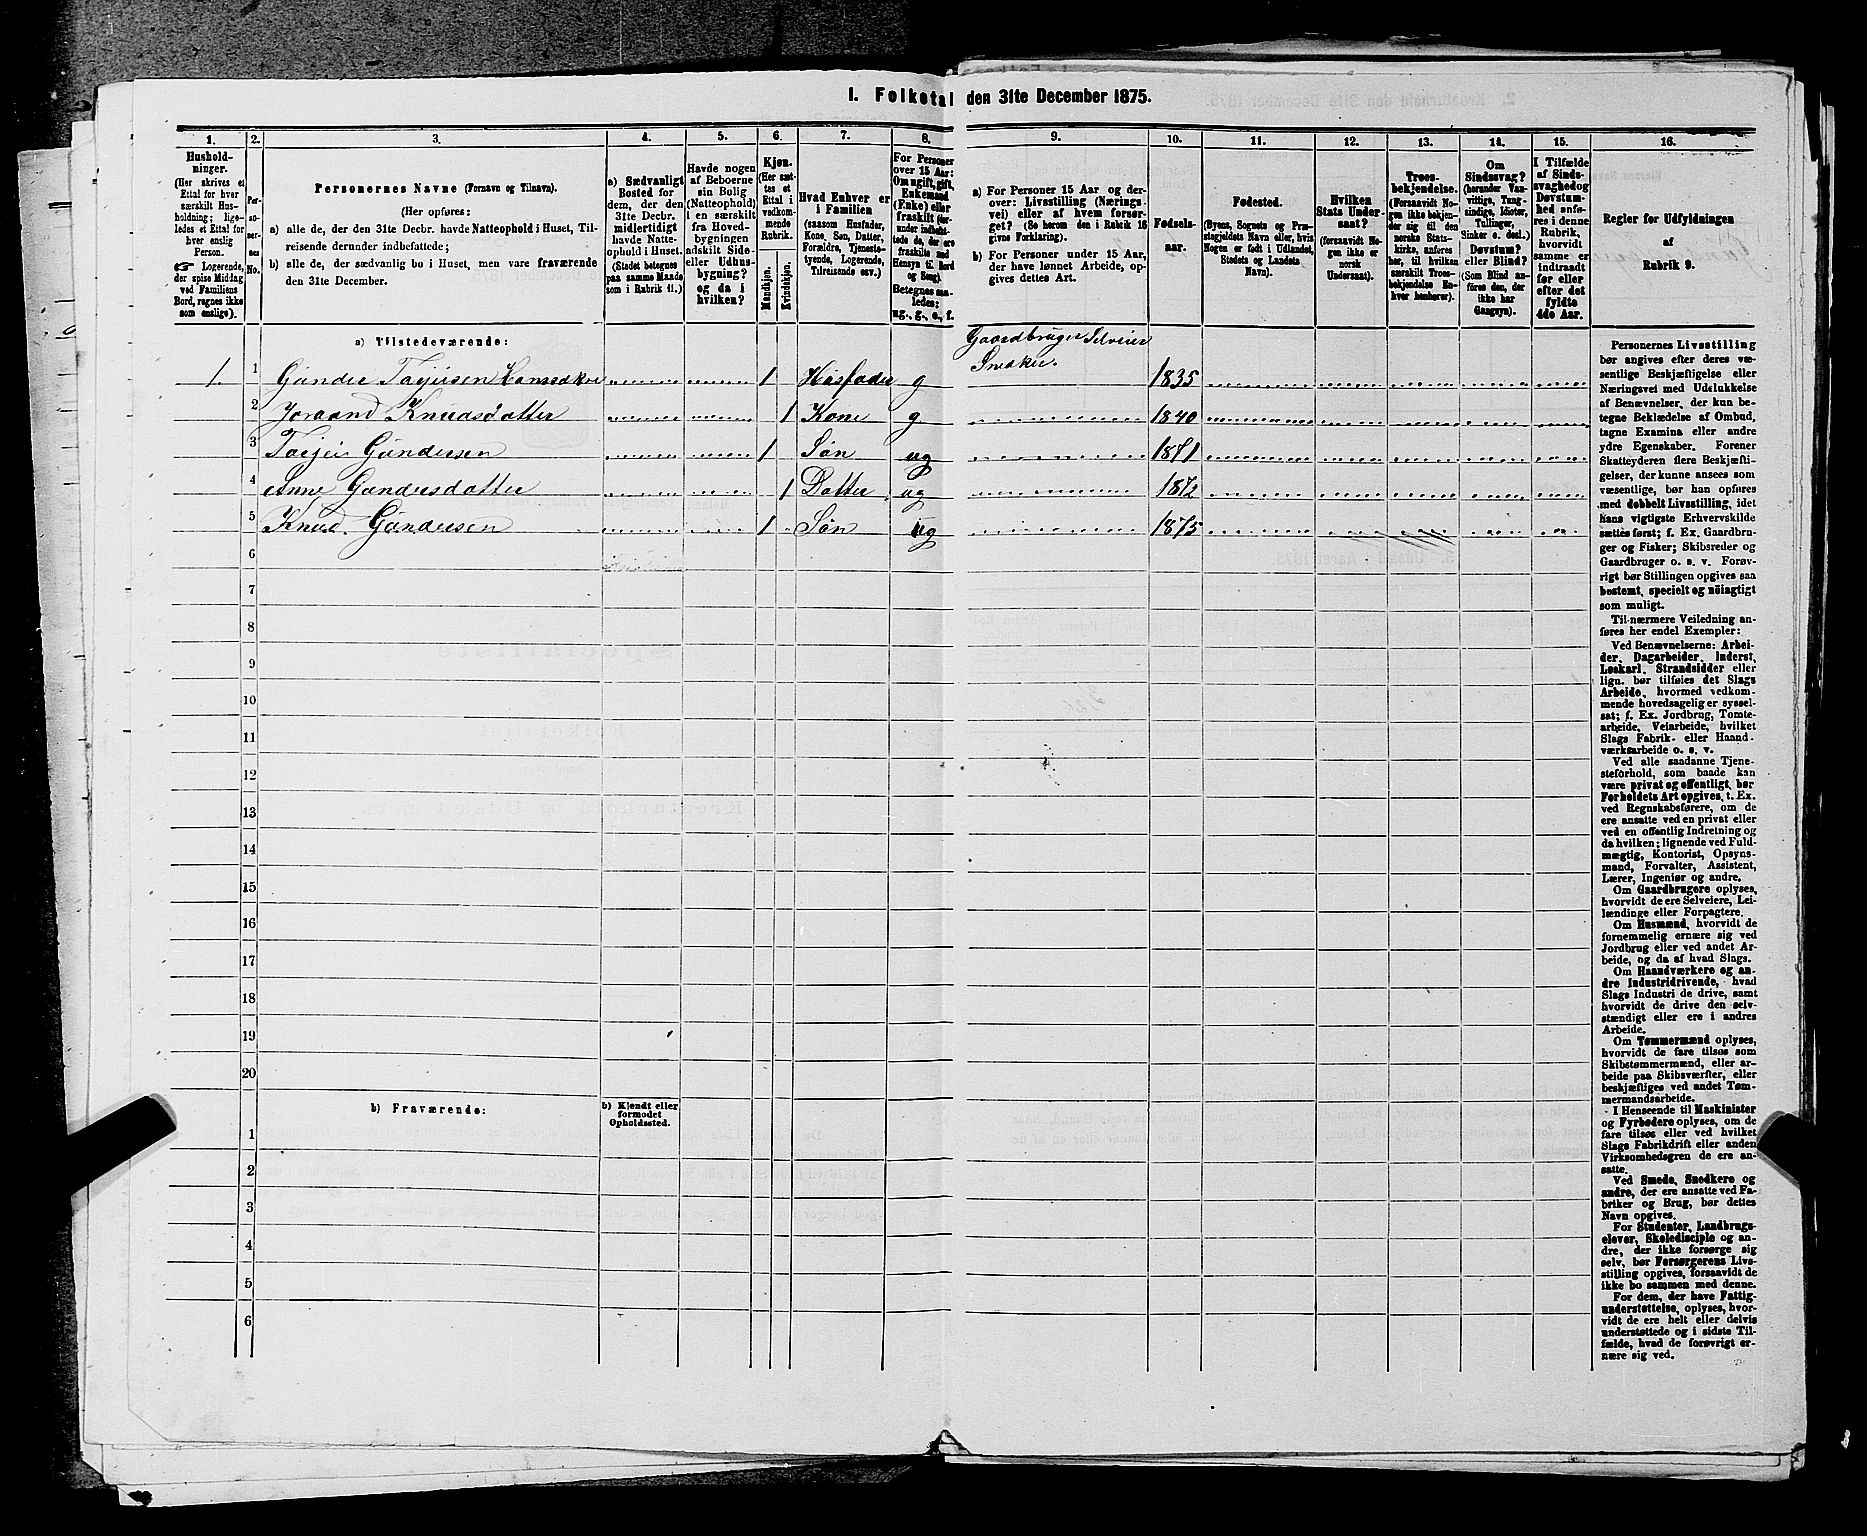 1. Folketal den 31te December 1875.
1. 2. 3. 4. 5. 6. 7. 8. 9. 10. 11. 12. 13. 14. 15. 16.
Hushold-
ninger.
(Her skrives et
Ettal for hver
særskilt Hus-
holdning; lige-
ledes et Ettal
for hver enslig
Person.
☞ Logerende,
der spise Middag
ved Familiens
Bord, regnes ikke
som enslige).
Per-
so-
ner-
nes
No.
Personernes Navne (Fornavn og Tilnavn).
(Her opføres:
a) alle de, der den 31te Decbr. havde Natteophold i Huset, Til-
reisende derunder indbefattede;
b) alle de, der sædvanlig bo i Huset, men vare fraværende
den 31te December.
a) Sædvanligt
Bosted for
dem, der den
31te Decbr.
midlertidigt
havde Natte-
ophold i Huset.
(Stedet betegnes
paa samme Maade
som i Rubrik 11.)
Havde nogen
af Beboerne
sin Bolig
(Natteophold)
i en særskilt
fra Hoved-
bygningen
adskilt Side-
eller Udhus-
bygning?
og da i
hvilken?
Kjøn.
(Her sæt-
tes et
Ettal i
vedkom-
mende
Rubrik.
Mandkjøn.
Kvindekjøn.
Hvad Enhver er
i Familien
(saasom Husfader,
Kone, Søn, Datter,
Forældre, Tjeneste-
tyende, Logerende,
Tilreisende osv.)
For Personer
over 15 Aar:
Om ugift, gift,
Enkemand
(Enke) eller
fraskilt (her-
under indbefat-
tede de, der ere
fraskilte med
Hensyn til Bord
og Seng).
Betegnes saa-
ledes:
ug., g., e., f.
a) For Personer 15 Aar og der-
over: Livsstilling (Nærings-
vei) eller af hvem forsør-
get? (Se herom den i Rubrik 16
givne Forklaring).
b) For Personer under 15 Aar,
der have lønnet Arbeide, op-
gives dettes Art.
Fødsels-
aar.
Fødested.
(Byens, Sognets og Præ-
stegjeldets Navn eller, hvis
Nogen er født i Udlandet,
Stedets og Landets
Navn).
Hvilken
Stats Under-
saat?
(forsaavidt No-
gen ikke er
norsk
Undersaat).
Troes-
bekjendelse.
(Forsaavidt No-
gen ikke bekjen-
der sig til den
norske Stats-
kirke, anføres
her, til hvilken
særskilt Troes-
bekjendelse En-
hver henhører).
Om
Sindssvag?
(herunder Van-
vittige, Tung-
sindige, Idioter,
Tullinger,
Sinker o. desl.)
Døvstum?
eller Blind?
(Som Blind an-
føres den, der
ikke har
Gangsyn).
I Tilfælde
af Sinds-
svaghed og
Døvstum-
hed anfø-
res i denne
Rubrik,
hvorvidt
samme er
indtraadt
før eller
efter det
fyldte
4de Aar.
Regler for Udfyldningen
af
Rubrik 9.
a) Tilstedeværende:
Gaardbruger Selveier
1. 1 Gunder Tarjeisen 1 Husfader g 1835
2 Joraand Knudsdatter 1 Kone g 1840
3 Tarjei Gundersen 1 Søn ug 1871
4 Anne Gundersdatter 1 Datter ug 1872
5 Knud Gundersen 1 Søn ug 1875
6
7
8
9
10
11
12
13
14
15
16
17
18
19
20
b) Fraværende:
b) Kjendt eller
formodet
Opholdssted.
1
2
3
4
5
6
Personernes Livsstilling
bør angives efter deres væ-
sentlige Beskjæftigelse eller
Næringsvei med Udelukkelse
af Benævnelser, der kun be-
tegne Beklædelse af Ombud,
tagne Examina eller andre
ydre Egenskaber. Forener
Skatteyderen flere Beskjæfti-
gelser, der kunne ansees som
væsentlige, bør han opføres
med dobbelt Livsstilling, idet
hans vigtigste Erhvervskilde
sættes først; f. Ex. Gaardbru-
ger og Fisker; Skibsreder og
Gaardbruger o. s. v. Forøv-
rigt bør Stillingen opgives saa
bestemt, specielt og nöiagtigt
som muligt.
Til nærmere Veiledning an-
føres her endel Exempler:
Ved Benævnelserne: Arbei-
der, Dagarbeider, Inderst,
Løskarl, Strandsidder eller
lign. bør tilføies det Slags
Arbeide, hvormed vedkom-
mende hovedsagelig er syssel-
sat; f. Ex. Jordbrug, Tomte-
arbeide, Veiarbeide, hvilket
Slags Fabrik- eller Haand-
værksarbeide o. s. v.
Ved alle saadanne Tjene-
steforhold, som baade kan
være privat og offentligt, bør
Forholdets Art opgives, t. Ex.
ved Regnskabsførere, om de
ere ansatte ved en privat eller
ved en offentlig Indretning og
da hvilken; lignende ved Fuld-
mægtig, Kontorist, Opsyns-
mand, Forvalter, Assistent,
Lærer, Ingeniør og andre.
Om Gaardbrugere oplyses,
hvorvidt de ere Selveiere, Lei-
lændinge eller Forpagtere.
Om Husmænd, hvorvidt de
fornemmelig ernære sig ved
Jordbrug eller ved andet Ar-
beide, og da af hvad Slags.
Om Haandværkere og an-
dre Industridrivende, hvad
Slags Industri de drive, samt
hvorvidt de drive den selv-
stændigt eller ere i andres
Arbeide.
Om Tømmermænd oplyses,
hvorvidt de fare tilsøs som
Skibstømmermænd, eller ar-
beide paa Skibsværfter, eller
beskjæftiges ved andet Tøm-
mermandsarbeide.
I Henseende til Maskinister
og Fyrbødere oplyses, om de
fare tilsøs eller ved hvilket
Slags Fabrikdrift eller anden
Virksomhedsgren de ere an-
satte.
Ved Smede, Snedkere og
andre, der ere ansatte ved Fa-
briker og Brug, bør dettes
Navn opgives.
For Studenter, Landbrugs-
elever, Skoledisciple og an-
dre, der ikke forsørge sig
selv, bør Forsørgerens Livs-
stilling opgives, forsaavidt de
ikke bo sammen med denne.
For dem, der have Fattig-
understøttelse, oplyses, hvor-
vidt de ere helt eller delvis
understøttede og i sidste Til-
fælde, hvad de forøvrigt er-
nære sig ved.